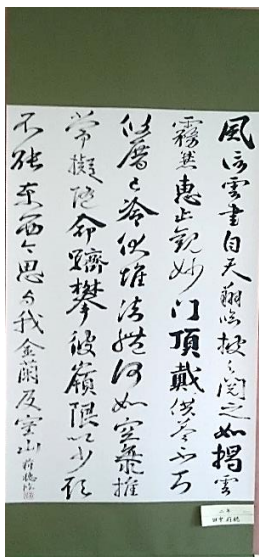 風信雲書自天翔臨披之閲之如揭雲
霧兼恵止觀妙门頂戴供養不知
攸厝已冷伏惟法體何如空海推
常擬隨命躋攀彼嶺限以少願
不能東西今思与我金蘭及室山
臨
二年